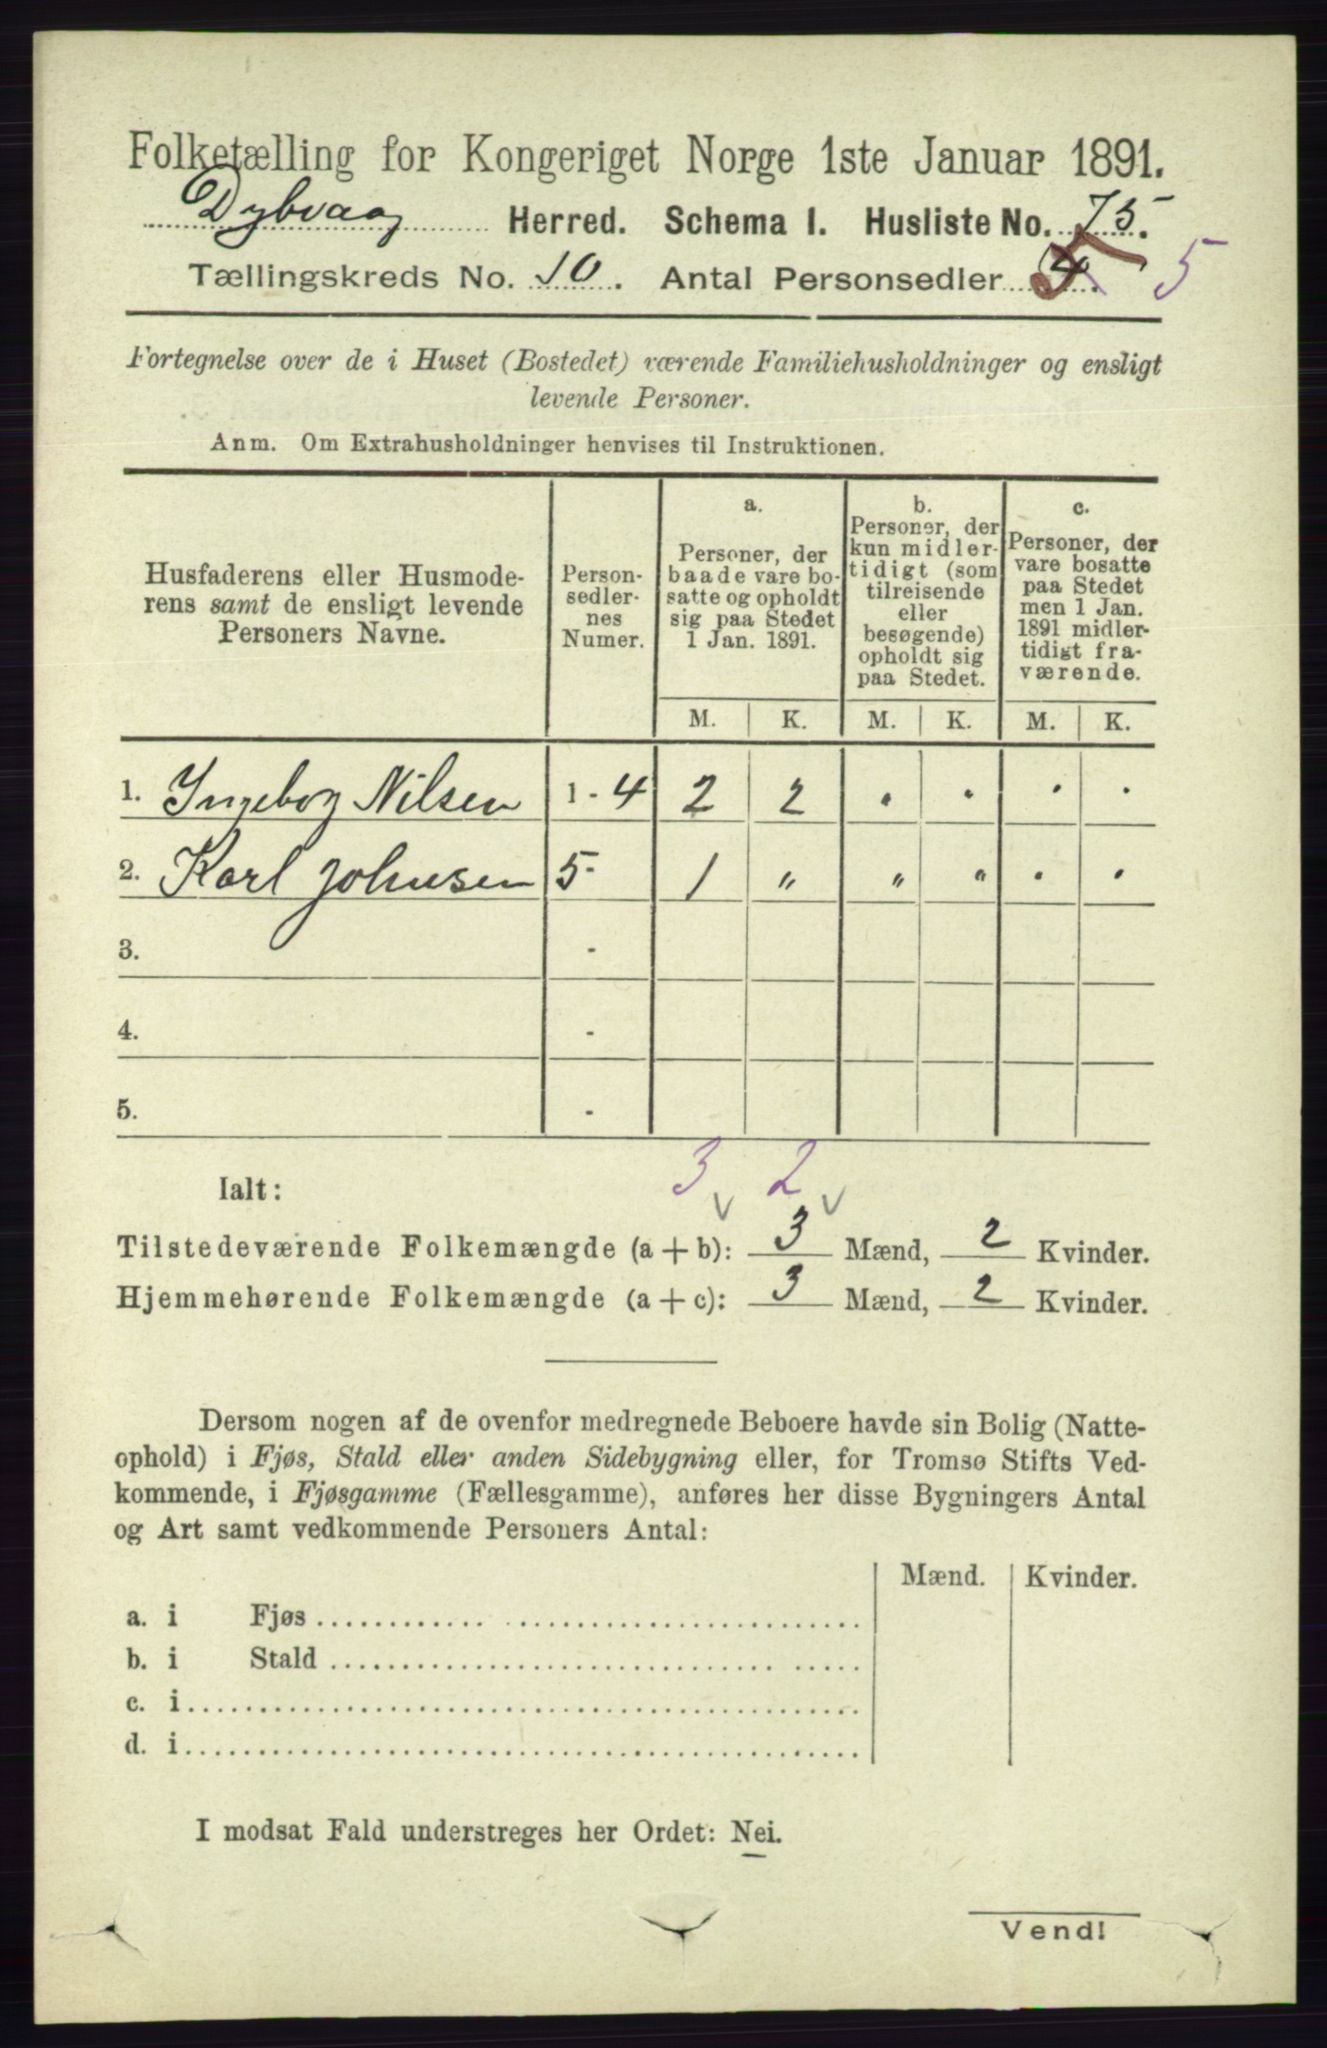 Folketælling for Kongeriget Norge 1ste Januar 1891.
Dybvaag Herred. Schema I. Husliste No. 75.
Tællingskreds No. 10. Antal Personsedler 5. 5
Fortegnelse over de i Huset (Bostedet) værende Familiehusholdninger og ensligt
levende Personer.
Anm. Om Extrahusholdninger henvises til Instruktionen.
Husfaderens eller Husmode-
rens samt de ensligt levende
Personers Navne.
Person-
sedler-
nes
Numer.
a.
Personer, der
baade vare bo-
satte og opholdt
sig paa Stedet
1 Jan. 1891.
b.
Personer, der
kun midler-
tidigt (som
tilreisende
eller
besøgende)
opholdt sig
paa Stedet.
c.
Personer, der
vare bosatte
paa Stedet
men 1 Jan.
1891 midler-
tidigt fra-
værende.
M. K. M. K. M. K.
1. Ingebor Nilsen 1 - 4 2 2 • • • •
2. Karl Johnsen 5 - 1 " " " • •
3. -
4. -
5. -
3 2
Ialt:
Tilstedeværende Folkemængde (a + b): 3 Mænd, 2 Kvinder.
Hjemmehørende Folkemængde (a + c): 3 Mænd, 2 Kvinder.
Dersom nogen af de ovenfor medregnede Beboere havde sin Bolig (Natte-
ophold) i Fjøs, Stald eller anden Sidebygning eller, for Tromsø Stifts Ved-
kommende, i Fjøsgamme (Fællesgamme), anføres her disse Bygningers Antal
og Art samt vedkommende Personers Antal:
Mænd. Kvinder.
a. i Fjøs
b. i Stald
c. i
d. i
I modsat Fald understreges her Ordet: Nei.
Vend!